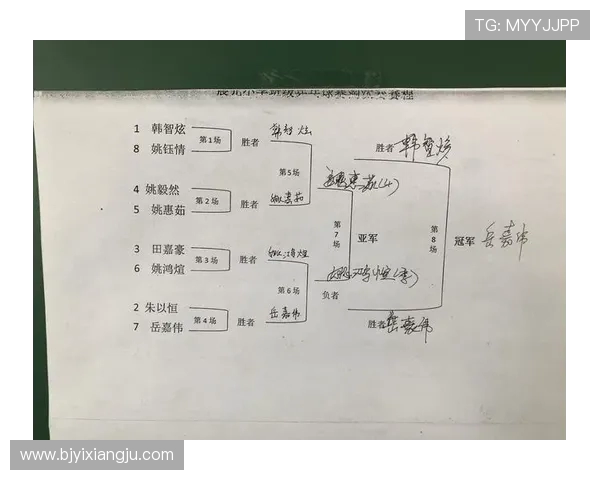 TG: MYYJJPP
1 韩智炫
第1场
胜者
韩智炫
8 姚钰情
第5场
4 姚毅然
第2场
胜者
姚惠茹
5 姚惠茹
3 田嘉豪
第3场
胜者
姚鸿煊
6 姚鸿煊
第6场
2 朱以恒
第4场
胜者
岳嘉伟
7 岳嘉伟
胜者 韩智炫
姚惠茹(4)
第7场
亚军
负者
第8场
冠军 岳嘉伟
胜者 岳嘉伟
www.bjyixiangju.com